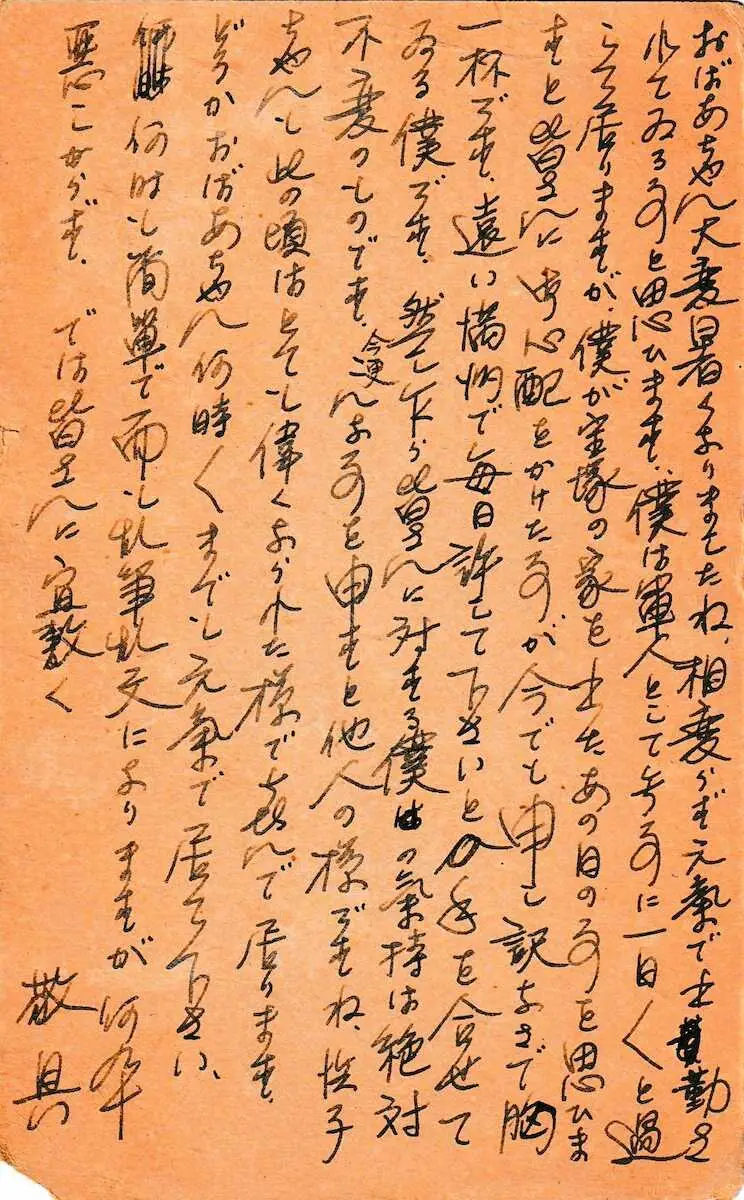 おばあちゃん大変暑くなりましたね、相変らず元気で出勤さ
れてゐる事と思ひます、僕は軍人として無事に一日〱と過
して居りますが、僕が宝塚の家を出たあの日の事を思ひま
すと皆さんに御心配をかけた事が今でも申し訳なさで胸
一杯です、遠い満州で毎日許して下さいと手を合せて
ゐる僕です、然し乍ら皆さんに対する僕の気持は絶対
不変のものです、今更んな事を申すと他人の様ですね、悦子
ちゃんも此の頃はとても偉くなられた様で喜んで居ります、
どうかおばあちゃん何時〱までも元氣で居て下さい、
何時も簡單で而も乱筆乱文になりますが何卒
悪しからず、では皆さんに宜敷く
敬具